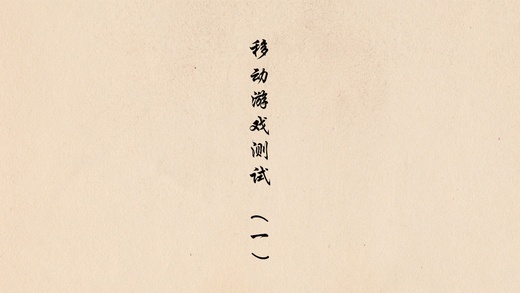 移动游戏测试（一）